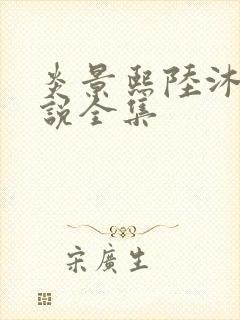 炎景熙陸沐
說全集
宋廣生